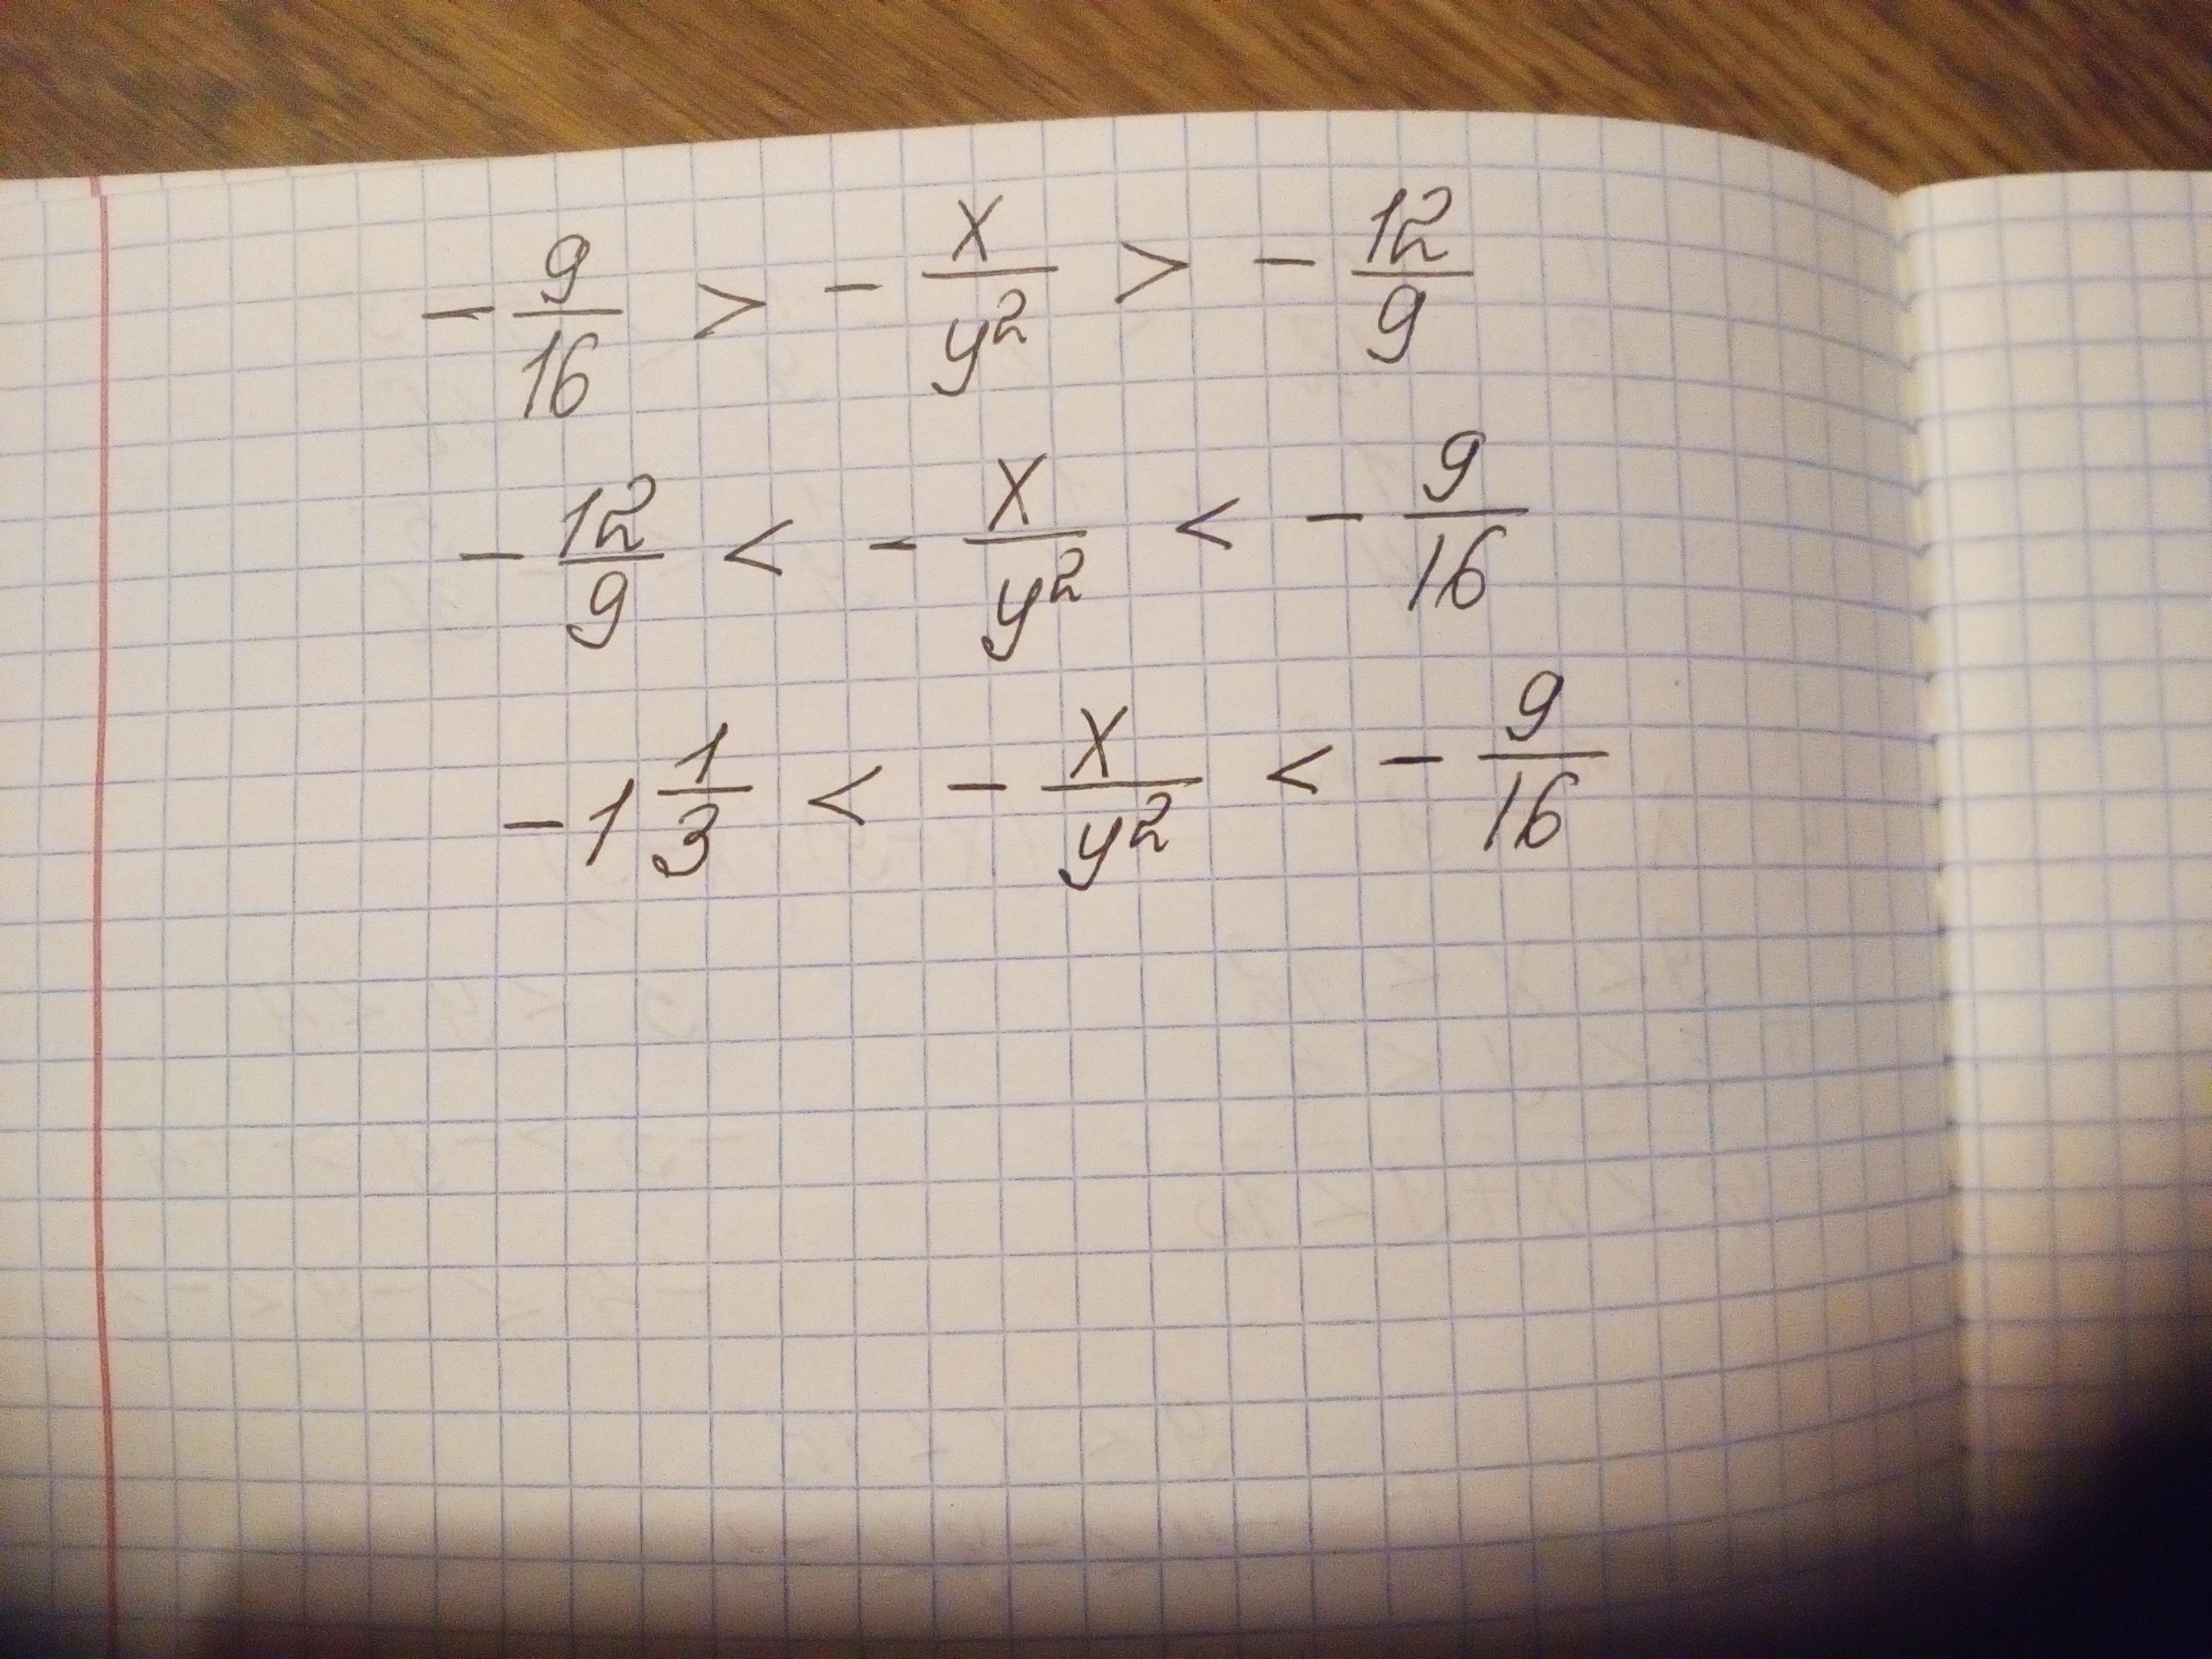 - 9/16 > - x/y² > - 12/9
- 12/9 < - x/y² < - 9/16
- 1 1/3 < - x/y² < - 9/16